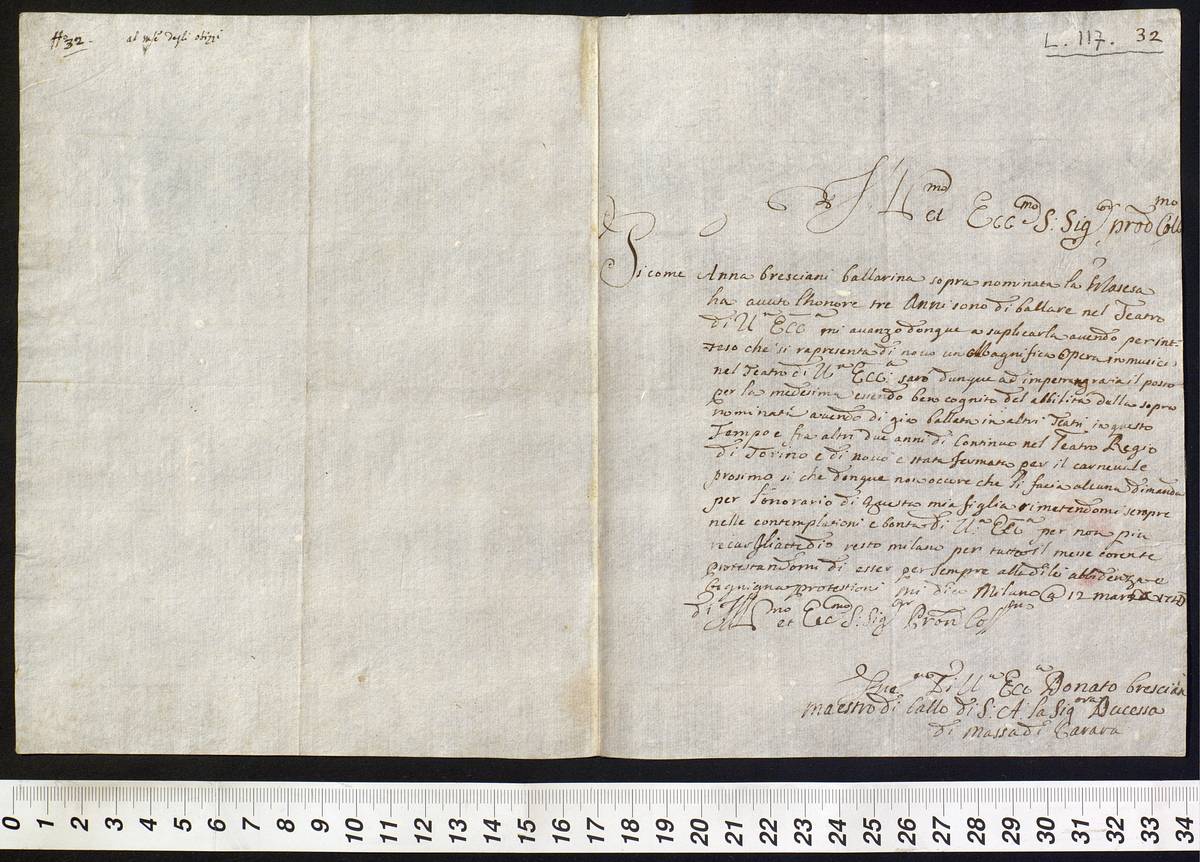 N.º 32. al mse degli obizzi
L. 117. 32
Ill.mo et Ecc.mo S: Sig.or prōn Coll.mo
Si come Anna bresciani ballarina sopra nominata la Masesa
ha auuto lhonore tre Anni sono di ballare nel Teatro
di V.a Ecc.a mi auanzo dongue a suplicarla auendo per int-
teso che si rapresenta di nouo un Magnifica Opera in musica
nel Teatro di V.a Ecc.a sarò dunque ad impetrar gratia il posto
per la medesima essendo ben cognito del abilità della sopra
nominata auendo di gia ballata in altri Teatri in questo
Tempo e fra altri due anni di Continuo nel Teatro Regio
di Torino e di nouo è stata fermata per il carneuale
prosimo si che dongue non occore che li facia alcuna dimanda
per l'onorario di questa mia figlia rimetendomi sempre
nelle contemplationi e bontà di V.a Ecc.a per non piu
recar tedio resto milano per tutto il mese corente
protestandomi di esser per sempre alle di lei obbidenza e
protestioni mi dico Milano @ 12 marzo
di V.S Ill.mo et Ecc.mo S: Sig.or Pron Col.mo
Di V.a Ecc.a Donato bresciani
maestro di ballo di S: A: la Sig.ora Ducessa
di massa di Carara
0 1 2 3 4 5 6 7 8 9 10 11 12 13 14 15 16 17 18 19 20 21 22 23 24 25 26 27 28 29 30 31 32 33 34